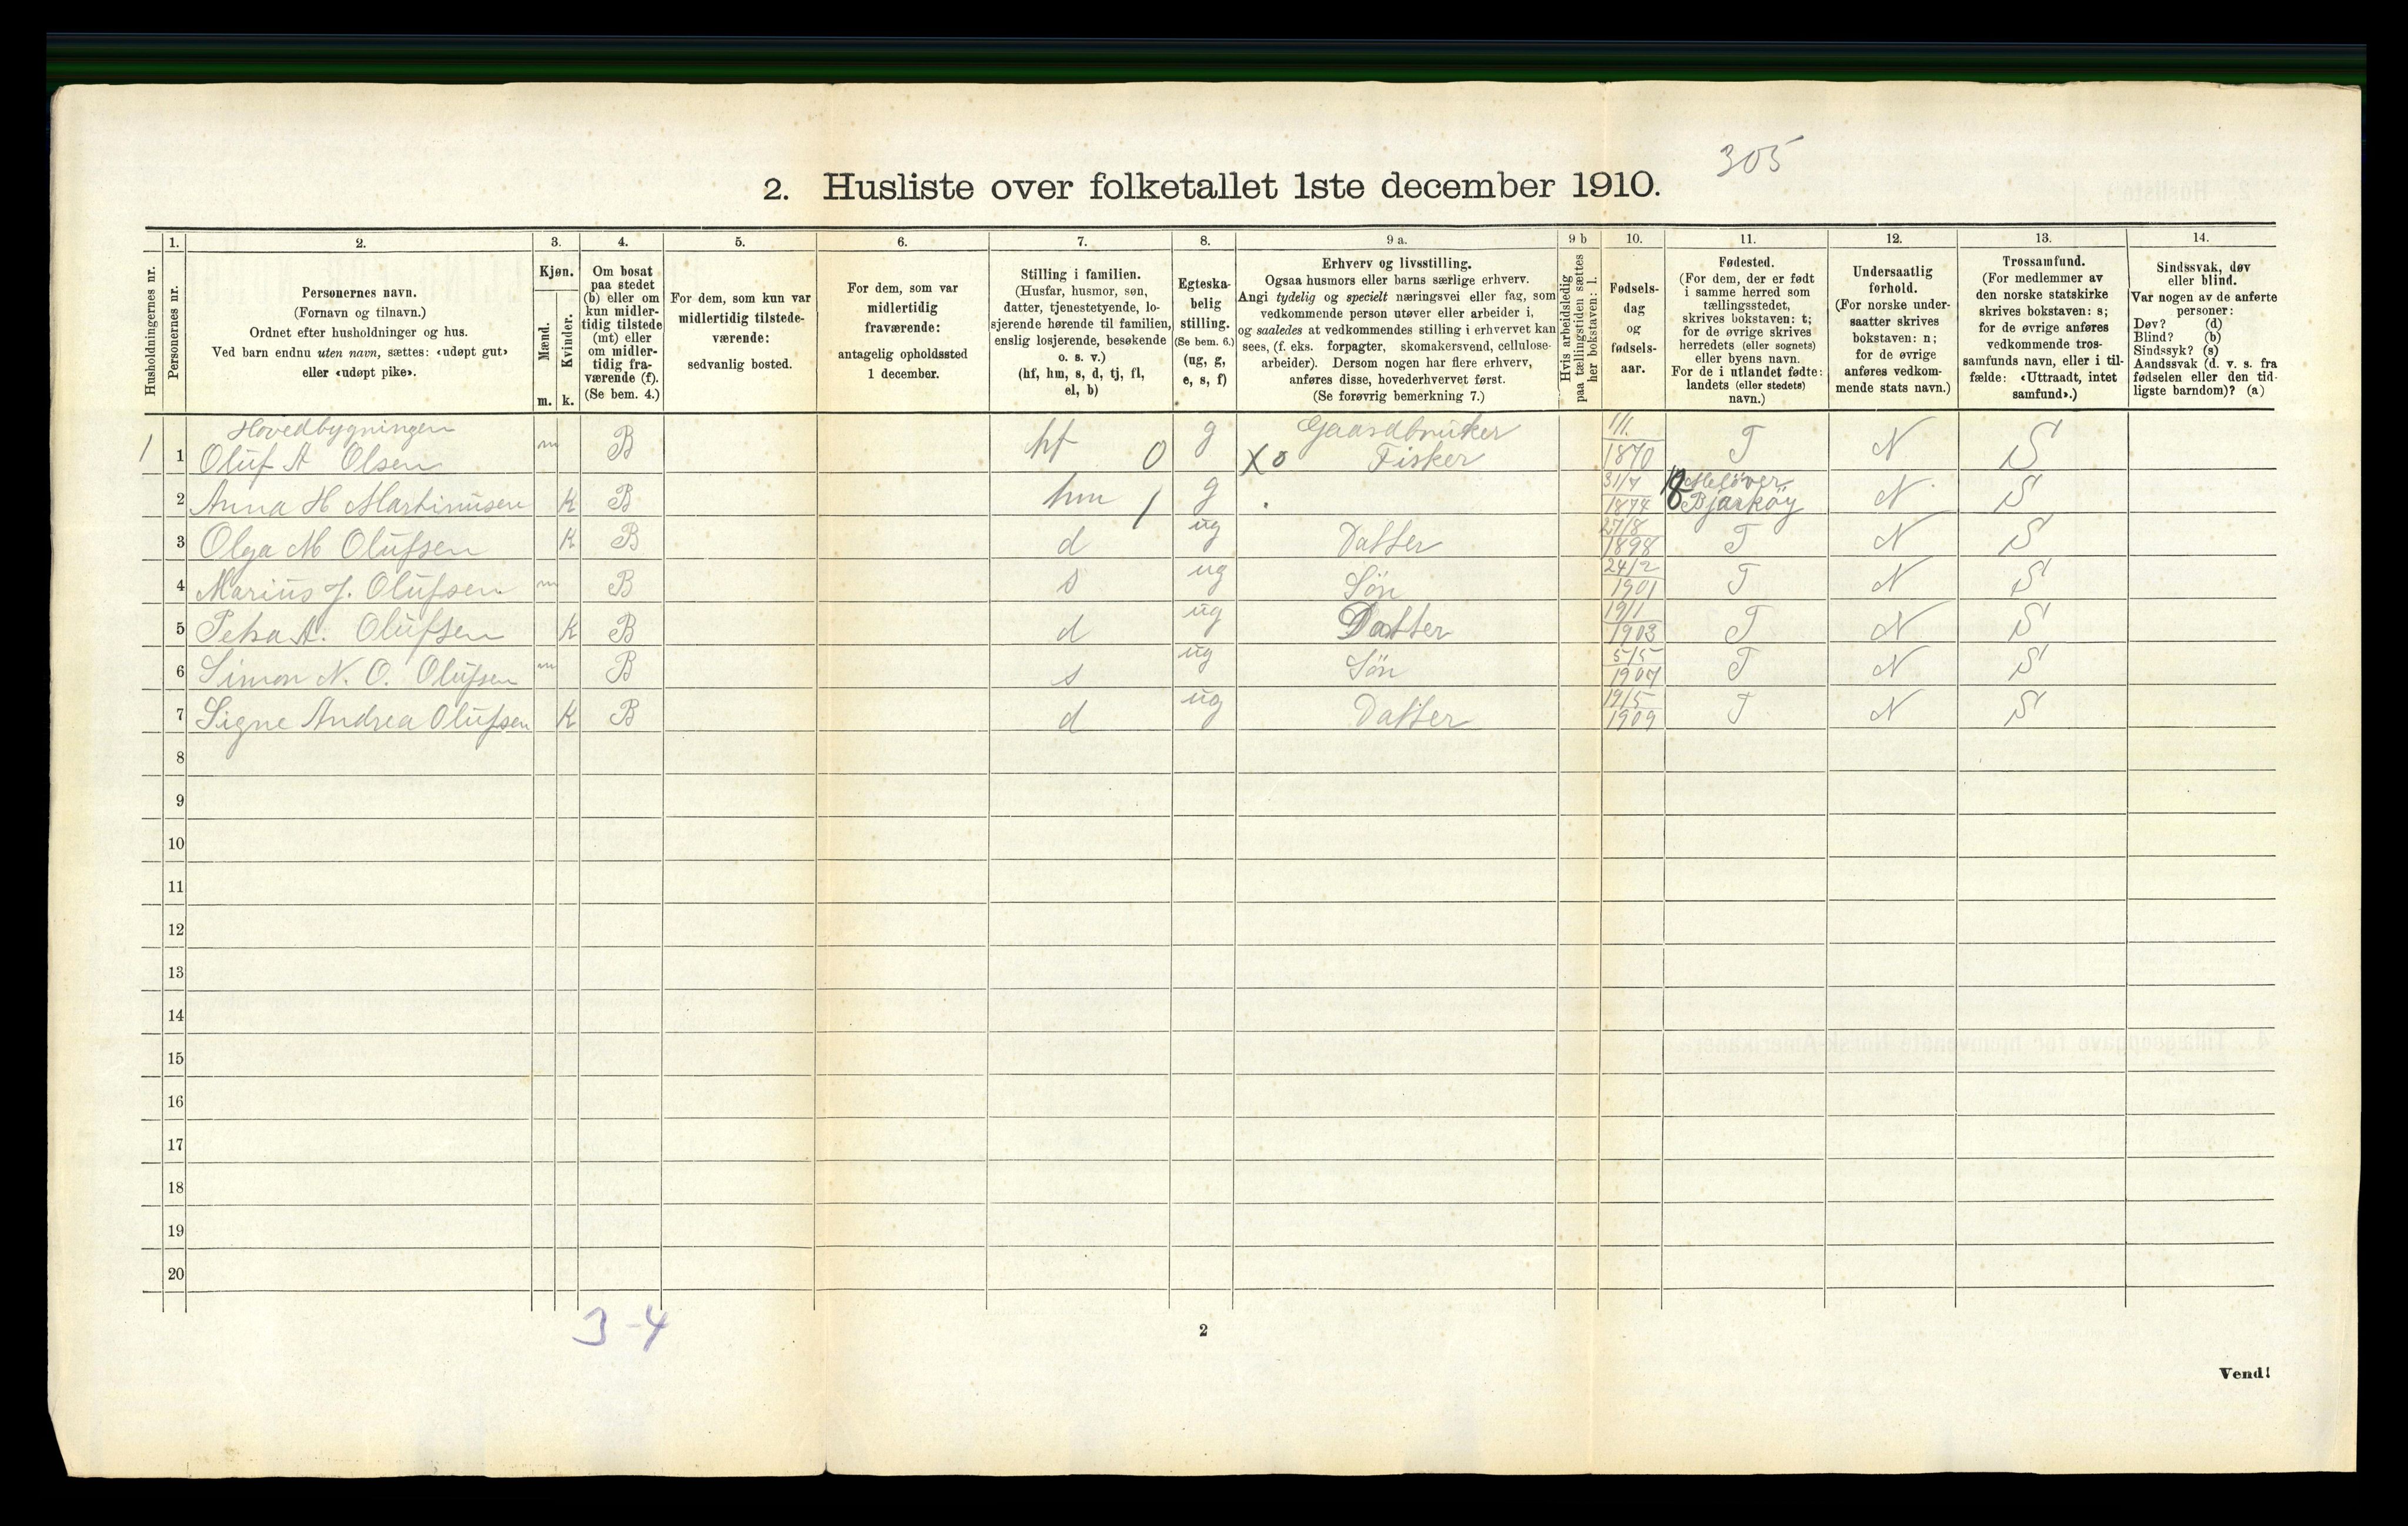 305
2. Husliste over folketallet 1ste december 1910.
Husholdningernes nr.
1.
Personernes nr.
2.
Personernes navn.
(Fornavn og tilnavn.)
Ordnet efter husholdninger og hus.
Ved barn endnu uten navn, sættes: «udøpt gut»
eller «udøpt pike».
3.
Kjøn.
Mænd.
Kvinder.
m. k.
4.
Om bosat
paa stedet
(b) eller om
kun midler-
tidig tilstede
(mt) eller
om midler-
tidig fra-
værende (f).
(Se bem. 4.)
5.
For dem, som kun var
midlertidig tilstede-
værende:
sedvanlig bosted.
6.
For dem, som var
midlertidig
fraværende:
antagelig opholdssted
1 december.
7.
Stilling i familien.
(Husfar, husmor, søn,
datter, tjenestetyende, lo-
sjerende hørende til familien,
enslig losjerende, besøkende
o. s. v.)
(hf, hm, s, d, tj, fl,
el, b)
8.
Egteska-
belig
stilling.
(Se bem. 6.)
(ug, g,
e, s, f)
9 a.
Erhverv og livsstilling.
Ogsaa husmors eller barns særlige erhverv.
Angi tydelig og specielt næringsvei eller fag, som
vedkommende person utøver eller arbeider i,
og saaledes at vedkommendes stilling i erhvervet kan
sees, (f. eks. forpagter, skomakersvend, cellulose-
arbeider). Dersom nogen har flere erhverv,
anføres disse, hovederhvervet først.
(Se forøvrig bemerkning 7.)
9 b
Hvis arbeidsledig
paa tællingstiden sættes
her bokstaven: l.
10.
Fødsels-
dag
og
fødsels-
aar.
11.
Fødested.
(For dem, der er født
i samme herred som
tællingsstedet,
skrives bokstaven: t;
for de øvrige skrives
herredets (eller sognets)
eller byens navn.
For de i utlandet fødte:
landets (eller stedets)
navn.)
12.
Undersaatlig
forhold.
(For norske under-
saatter skrives
bokstaven: n;
for de øvrige
anføres vedkom-
mende stats navn.)
13.
Trossamfund.
(For medlemmer av
den norske statskirke
skrives bokstaven: s;
for de øvrige anføres
vedkommende tros-
samfunds navn, eller i til-
fælde: «Uttraadt, intet
samfund».)
14.
Sindssvak, døv
eller blind.
Var nogen av de anførte
personer:
Døv? (d)
Blind? (b)
Sindssyk? (s)
Aandssvak (d. v. s. fra
fødselen eller den tid-
ligste barndom)? (a)
Hovedbygningen
1 1 Oluf A Olsen m B hf 0 g Gaardbruker x o Fisker 1/1. 1870 T N S
2 Anna H Martinusen K B hm 1 g 31/7 1874 Meløver Bjarkøy N S
3 Olga M Olufsen K B d ug Datter 27/8 1898 T N S
4 Marius J. Olufsen m B s ug Søn 24/2 1901 T N S
5 Petra A. Olufsen K B d ug Datter 19/1 1903 T N S
6 Simon N. O. Olufsen m B s ug Søn 5/5 1907 T N S
7 Signe Andrea Olufsen K B d ug Datter 19/5 1909 T N S
8
9
10
11
12
13
14
15
16
17
18
19
20
3-4
2
Vend!